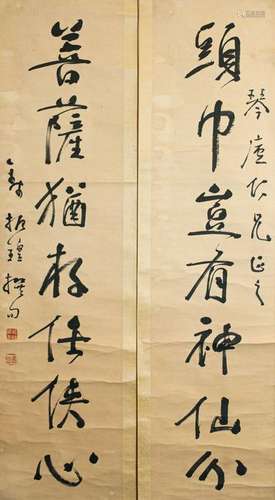 琴廬仁兄正之
頭巾豈有神仙分
菩薩猶存任俠心
振鍠撰句